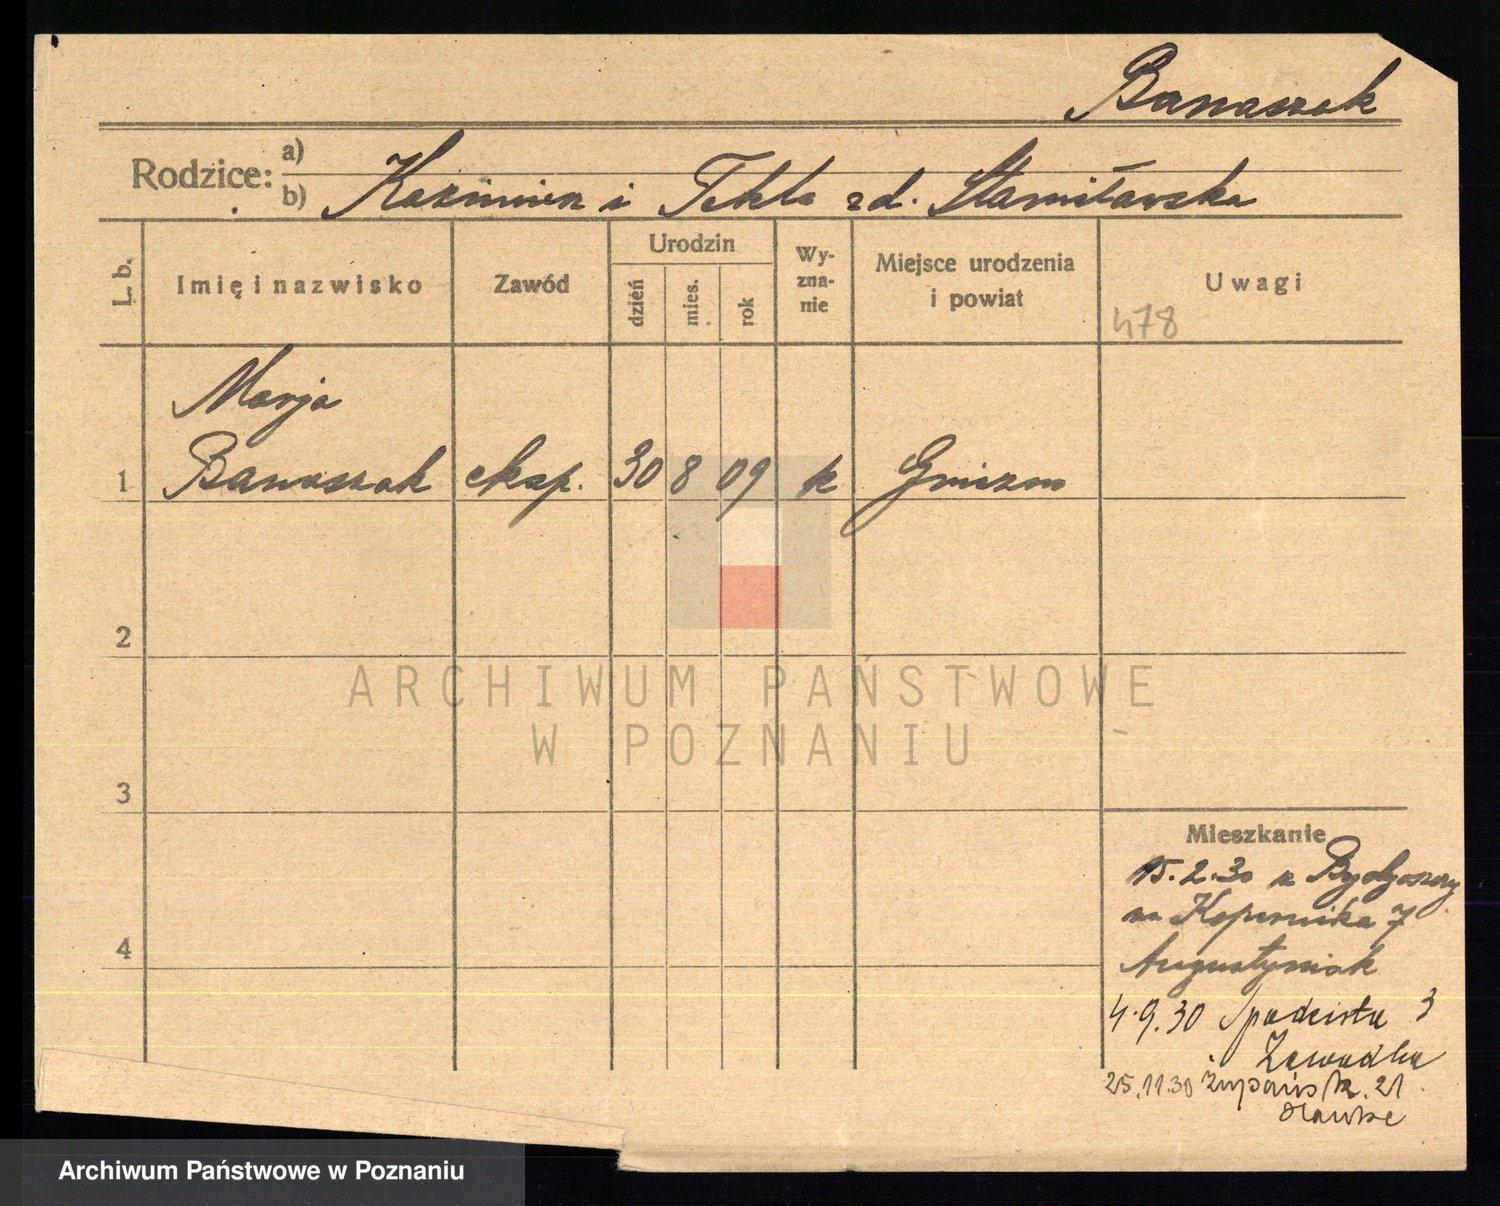 Banaszak
Rodzice: a)
b) Kazimierz i Tekla zd. Stanisławska
L. b.
Imię i nazwisko
Zawód
Urodzin
dzień
mies.
rok
Wy-
zna-
nie
Miejsce urodzenia
i powiat
Uwagi
478
Marja
1 Banaszak eksp. 30 8 09 k Gniezno
2
ARCHIWUM PAŃSTWOWE
W POZNANIU
3
Mieszkanie
15.2.30 z Bydgoszczy
na Kopernika 7
Augustyniak
4
4.9.30 Spadzista 3
Zawadka
25.11.30 Żupańsk. 21
Archiwum Państwowe w Poznaniu